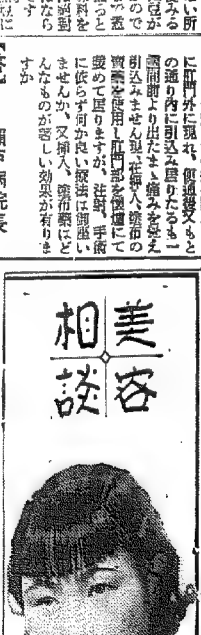 に肛門外に現れ、便通後又もと
の通り内に引込み居りたるも一
週間前より出たまゝ痛みを覚え
引込みません現、在挿入、塗布の
賣薬を使用し肛門部を懐爐にて
暖めて居りますが、注射、手術
に依らず何か良い療法は御座い
ませんか、又挿入、塗布薬はど
んなものが著しい効果が有りま
すか
病院長
美容
相談